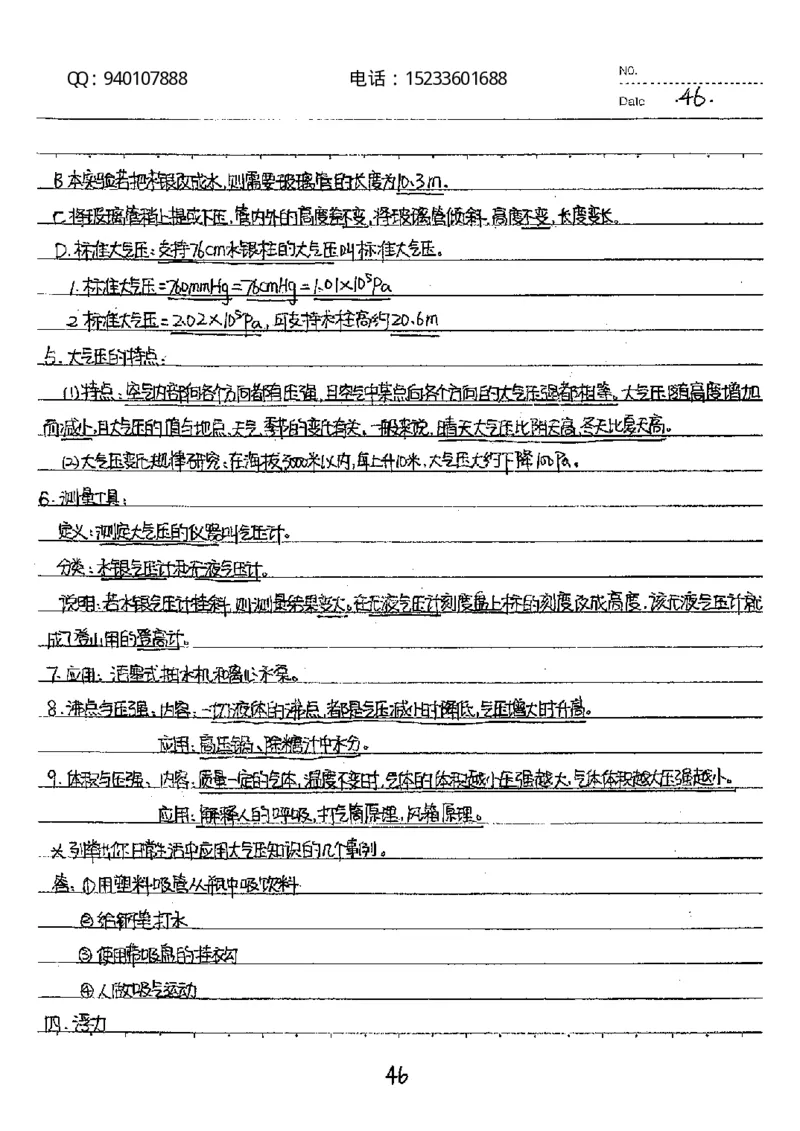 QQ：940107888 电话：15233601688 NO.
Date .46.
B本实验若把水银改成水,则需要玻璃管的长度为10.3m.
C.将玻璃管稍上提或下压,管内外的高度差不变,将玻璃管倾斜,高度不变,长度变长。
D.标准大气压:支持76cm水银柱的大气压叫标准大气压。
1.标准大气压=760mmHg=76cmHg=1.01×10⁵Pa
2 标准大气压=2.02×10⁵Pa,可支持水柱高约20.6m
5.大气压的特点:
(1)特点:空气内部向各个方向都有压强,且空气中某点向各个方向的大气压强都相等。大气压随高度增加
而减小,且大气压的值与地点、天气、季节的变化有关。一般来说,晴天大气压比阴天高,冬天比夏天高。
(2)大气压变化规律研究:在海拔3000米以内,每上升10米,大气压大约下降100Pa。
6.测量工具:
定义:测定大气压的仪器叫气压计。
分类:水银气压计和无液气压计。
说明:若水银气压计挂斜,则测量结果变大。在无液气压计刻度盘上标的刻度改成高度,该无液气压计就
成了登山用的登高计。
7.应用:活塞式抽水机和离心水泵。
8.沸点与压强:内容:一切液体的沸点,都是气压减小时降低,气压增大时升高。
应用:高压锅、除糖汁中水分。
9.体积与压强、内容:质量一定的气体,温度不变时,气体的体积越小压强越大,气体体积越大压强越小。
应用:解释人的呼吸,打气筒原理,风箱原理。
☆列举出你日常生活中应用大气压知识的几个事例。
答:①用塑料吸管从瓶中吸饮料
②给钢笔打水
③使用带吸盘的挂衣勾
④人做吸气运动
四.浮力
46